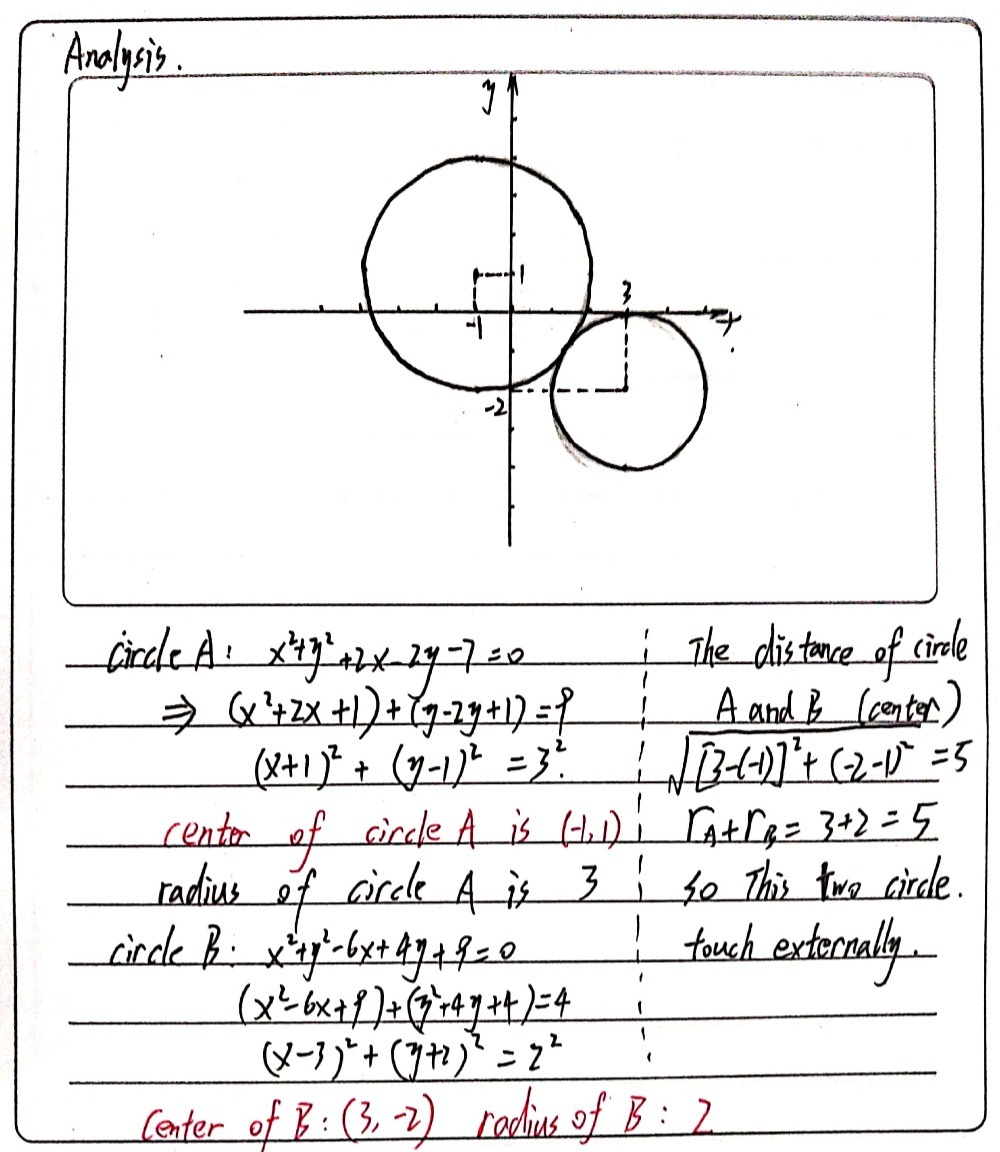 Analysis.
y
1
3
-1
x
-2
Circle A: x²+y²+2x-2y-7=0
⇒ (x²+2x+1)+(y-2y+1)=9
(x+1)² + (y-1)² = 3².
center of circle A is (-1,1)
radius of circle A is 3
circle B: x²+y²-6x+4y+9=0
(x²-6x+9)+(y²+4y+4)=4
(x-3)²+(y+2)²=2²
Center of B:(3,-2) radius of B: 2
The distance of circle
A and B (center)
√[3-(-1)]²+(-2-1)² =5
r_A+r_B=3+2=5
so This two circle.
touch externally.